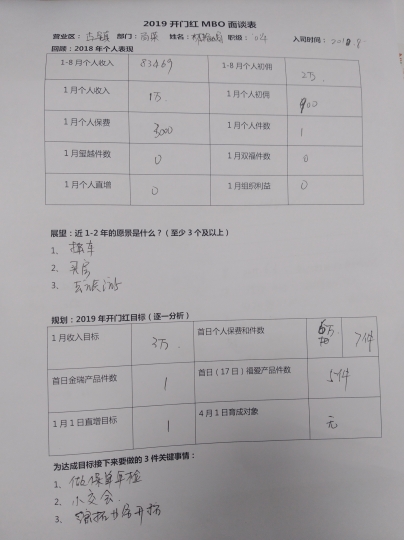 2019 开门红 MBO 面谈表
营业区： 部门： 姓名： 职级： 04 入司时间：
回顾：2018 年个人表现
1-8 月个人收入 83469 1-8 月个人初佣 2万.
1 月个人收入 1万. 1 月个人初佣 900
1 月个人保费 3000 1 月个人件数 1
1 月玺越件数 0 1 月双福件数 0
1 月个人直增 0 1 月组织利益 0
展望：近 1-2 年的愿景是什么？（至少 3 个及以上）
1、 换车
2、 买房
3、 去旅游
规划：2019 年开门红目标（逐一分析）
1 月收入目标 3万. 首日个人保费和件数 7件
首日金瑞产品件数 1 首日（17 日）福爱产品件数 5件
1 月 1 日直增目标 1 4 月 1 日育成对象 无
为达成目标接下来要做的 3 件关键事情：
1、 做保单年检
2、 小交会.
3、